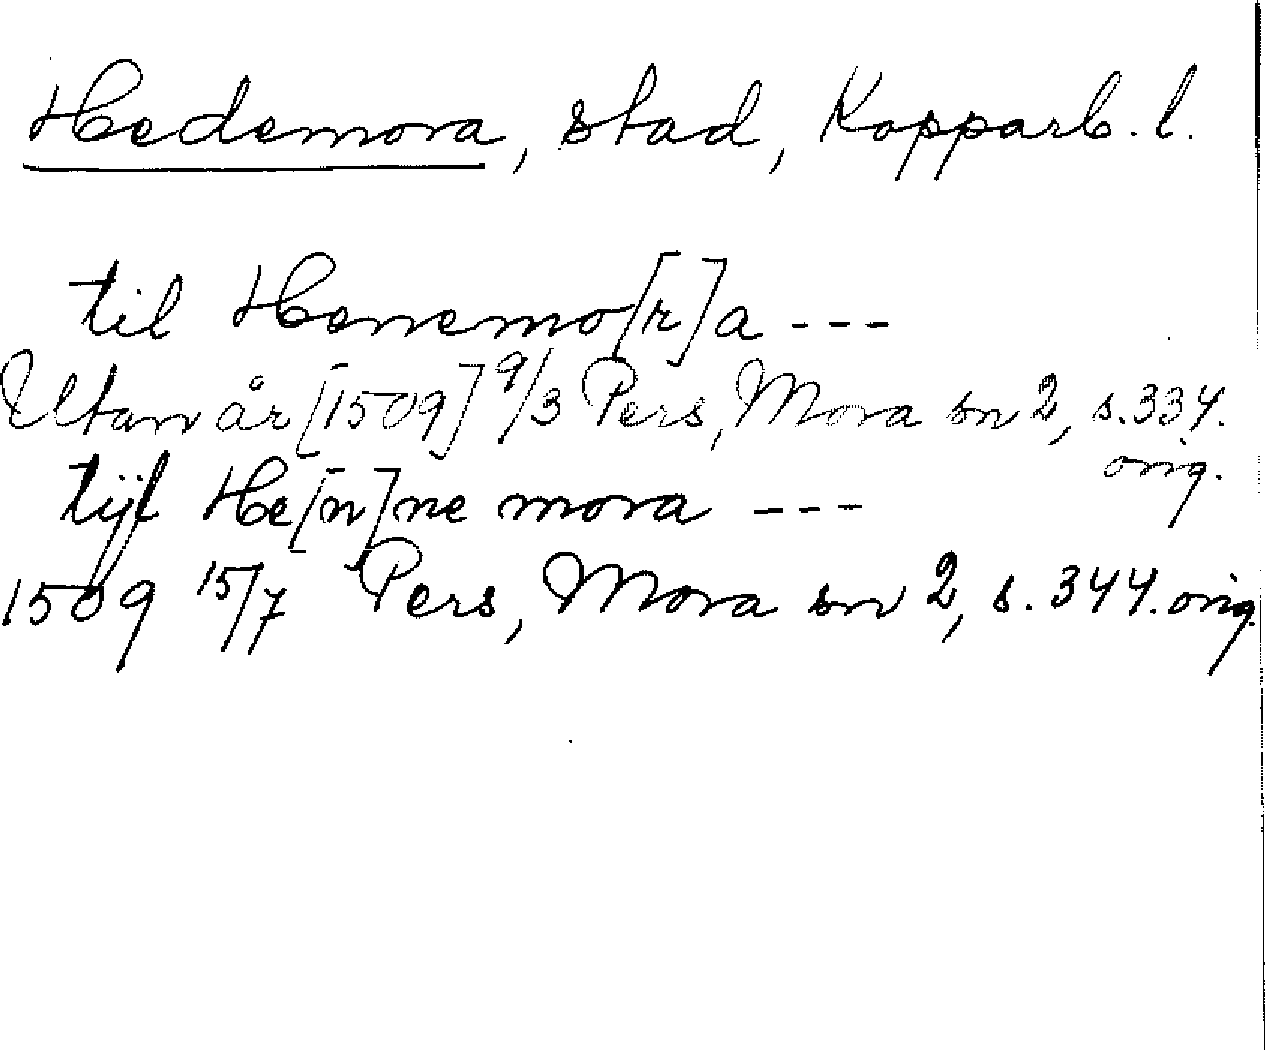 Hedemora, stad, Kopparb. l.
til Hennemo[r]a ---
Utan år [1509] 9/3 Pers, Mora sn 2, s. 334.
orig.
tijl He[n]ne mora ---
1509 15/7 Pers, Mora sn 2, s. 344. orig.